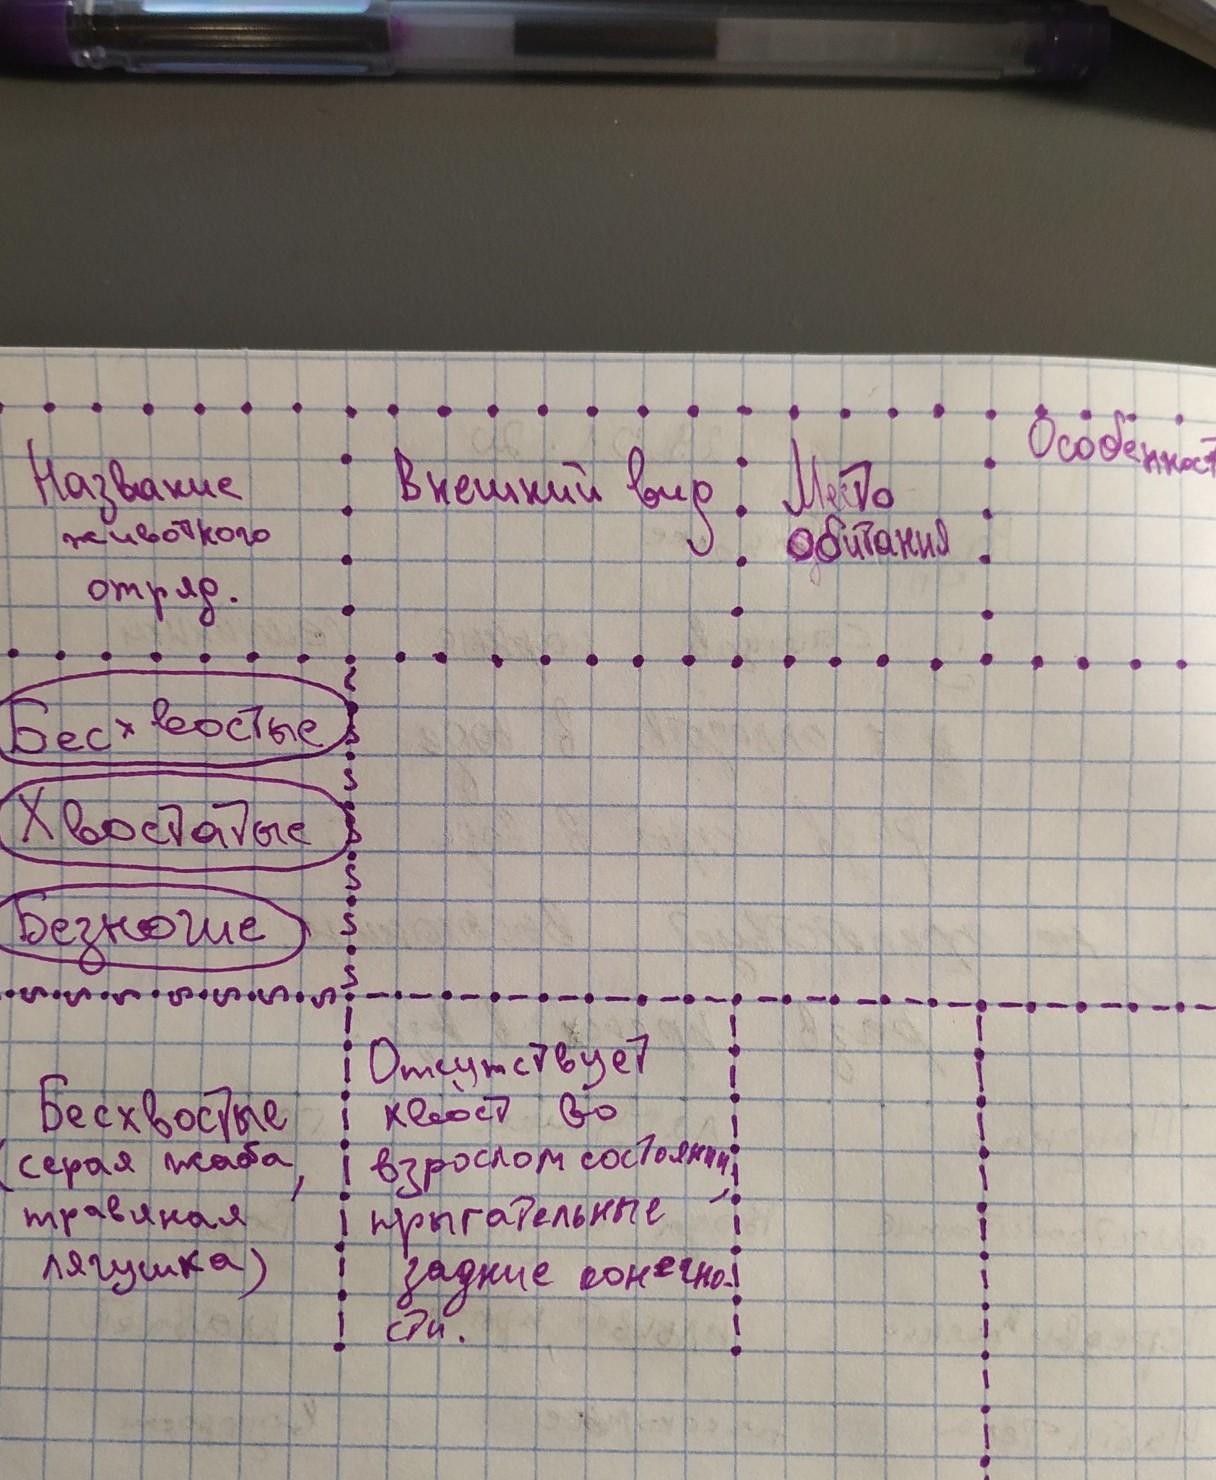 Название
животного
отряд.
Внешний вид
Место
обитания
Особенност
Бесхвостые
Хвостатые
Безногие
Бесхвостые
(серая жаба,
травяная
лягушка)
Отсутствует
хвост во
взрослом состоянии,
прыгательные
задние конечно-
сти.